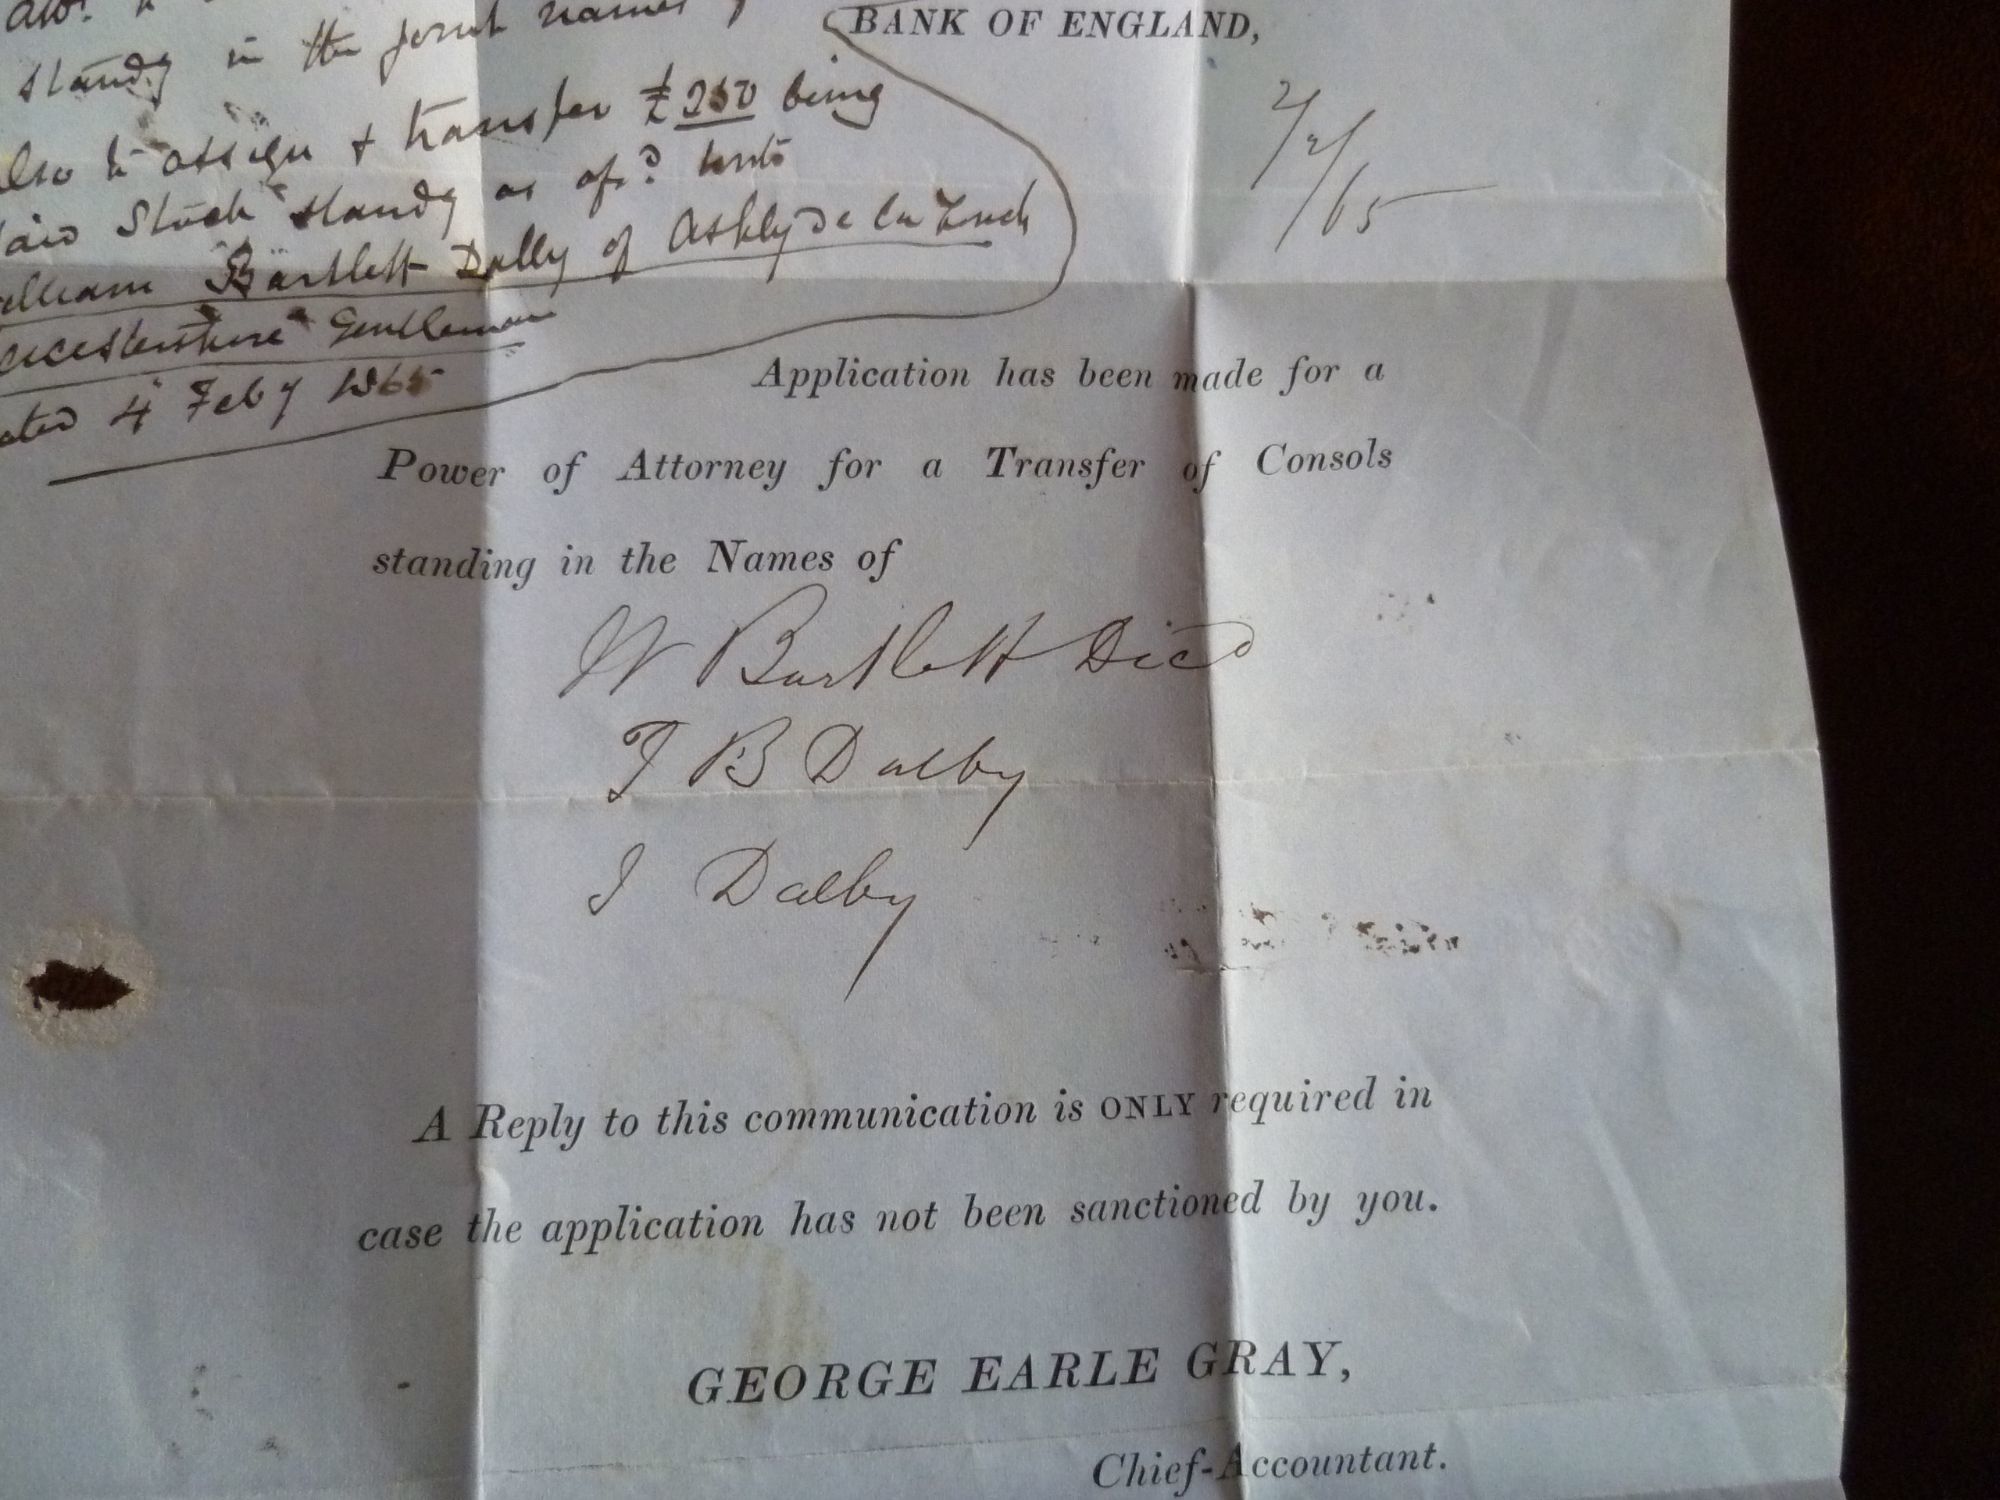 BANK OF ENGLAND,
2/2/65
standg in the joint names
to assign & transfer £250 being
Stock standg as afsd unto
Bartlett Dalby of Ashby de la Zouch
Gentleman
4 Feby 1865
Application has been made for a
Power of Attorney for a Transfer of Consols
standing in the Names of
W Bartlett Died
T B Dalby
J Dalby
A Reply to this communication is ONLY required in
case the application has not been sanctioned by you.
GEORGE EARLE GRAY,
Chief-Accountant.